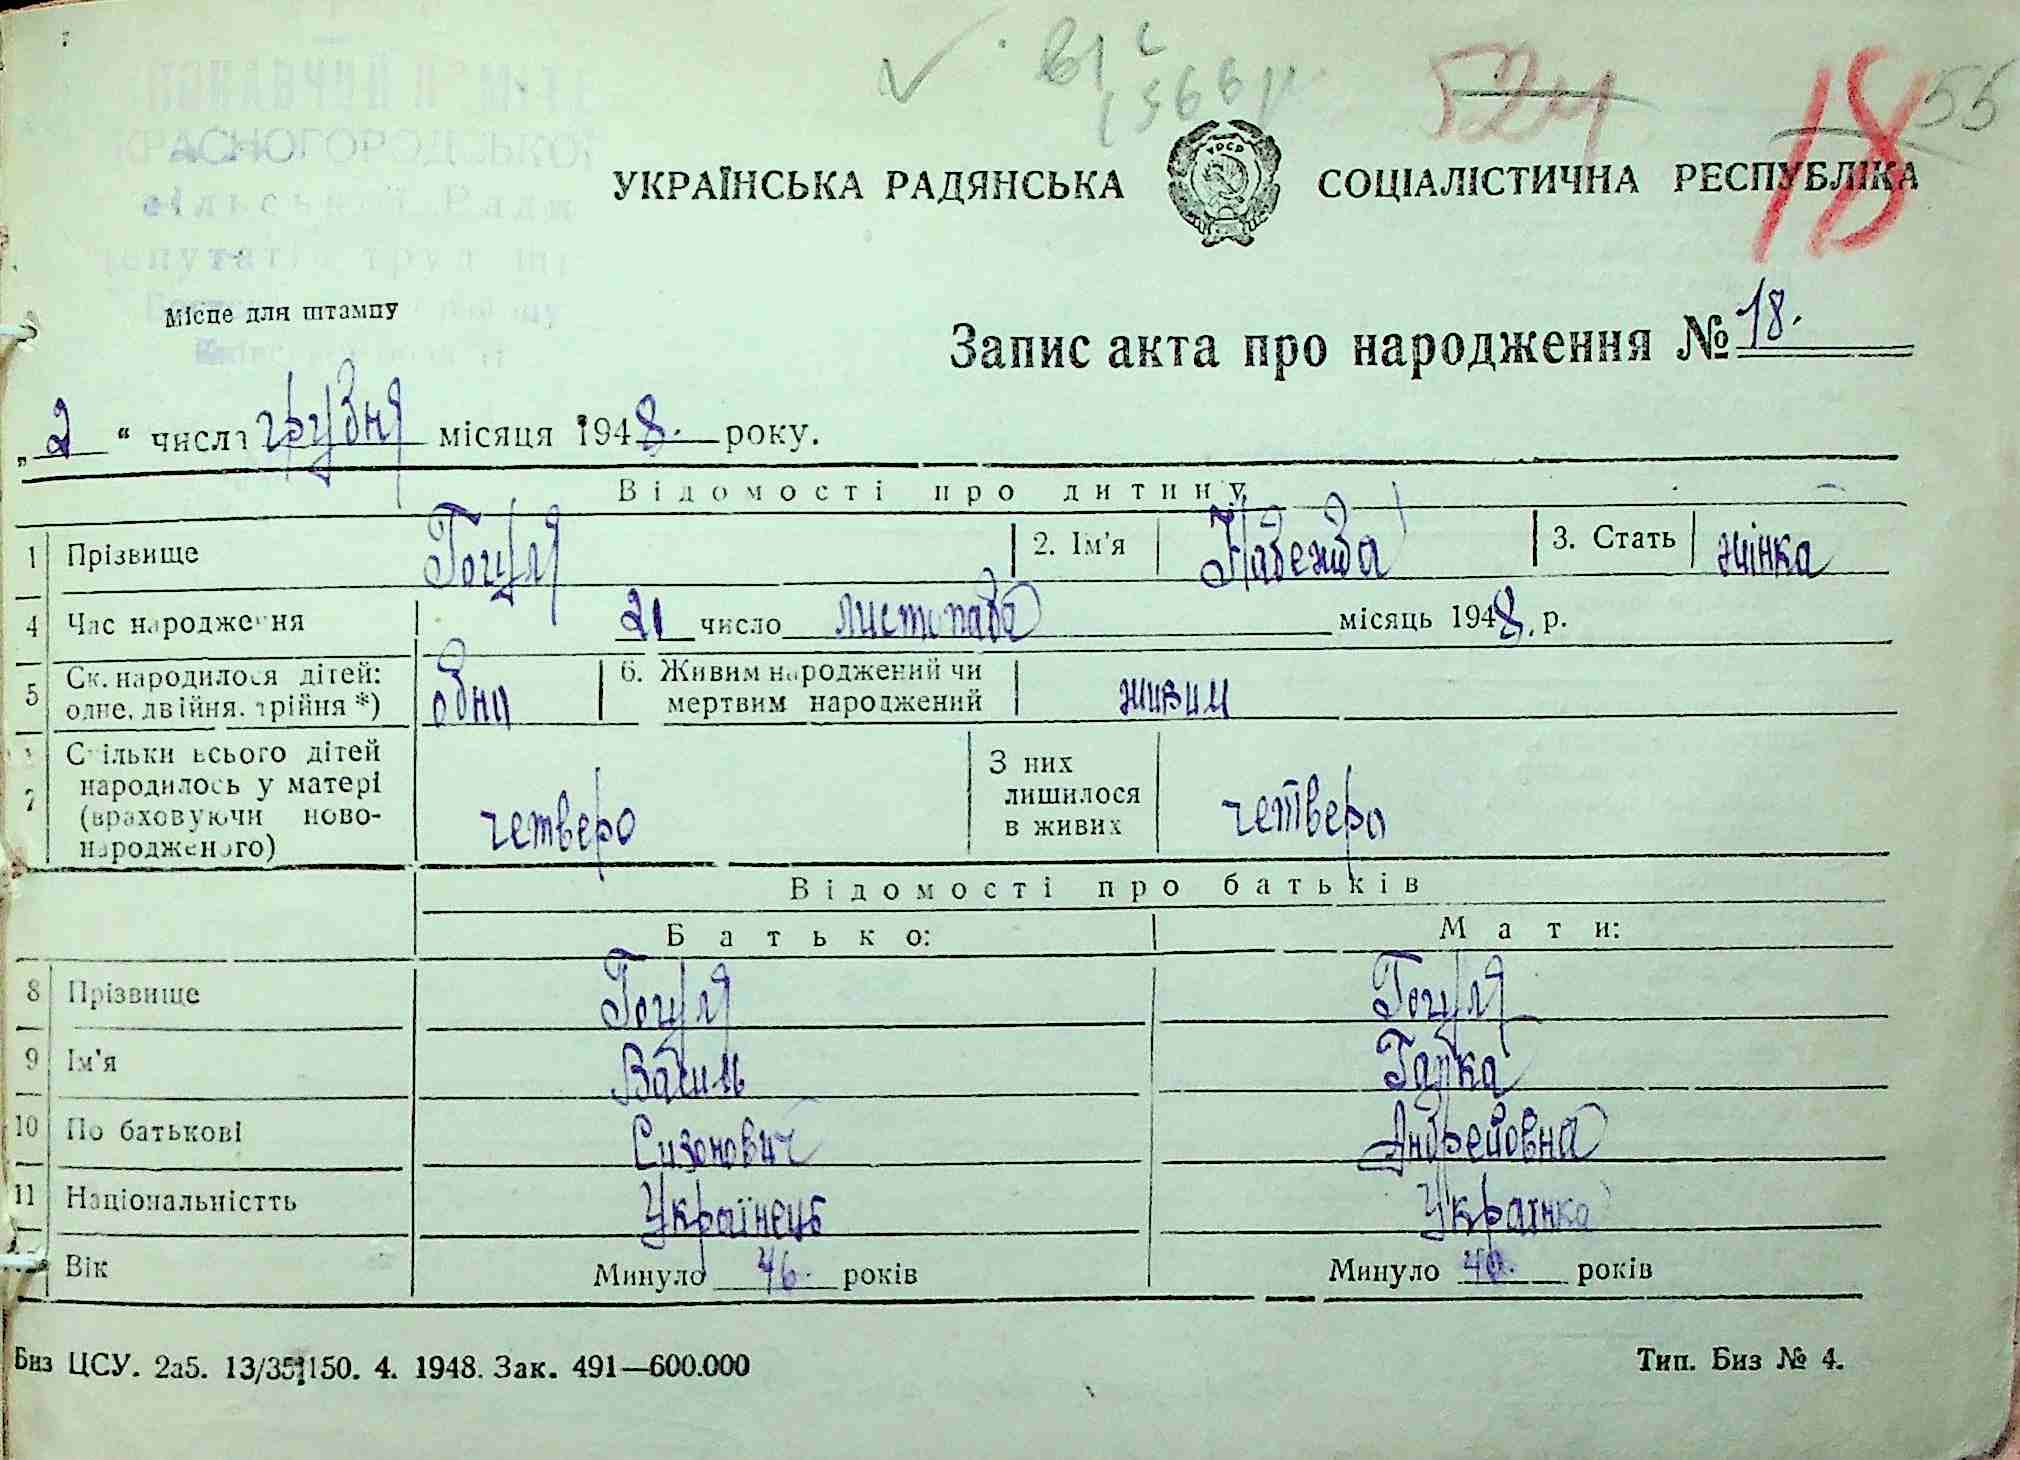 55
18
524
УКРАЇНСЬКА РАДЯНСЬКА СОЦІАЛІСТИЧНА РЕСПУБЛІКА
УРСР
КРАСНОГОРОДСЬКОЇ
сільської Ради
Місце для штампу
Запис акта про народження № 18.
„2“ числа грудня місяця 1948. року.
Відомості про дитину
1 Прізвище Гоцуля 2. Ім'я Надежда 3. Стать жінка
4 Час народження 21 число листопада місяць 1948. р.
5 Ск. народилося дітей: одне, двійня, трійня *) одна 6. Живим народжений чи мертвим народжений живим
7 Скільки всього дітей народилось у матері (враховуючи ново-народженого) четверо З них лишилося в живих четверо
Відомості про батьків
Батько: Мати:
8 Прізвище Гоцуля Гоцуля
9 Ім'я Василь Гапка
10 По батькові Сизонович Андрейовна
11 Національністть Українець Українка
Вік Минуло 46. років Минуло 40. років
Биз ЦСУ. 2а5. 13/35 150. 4. 1948. Зак. 491—600.000 Тип. Биз № 4.